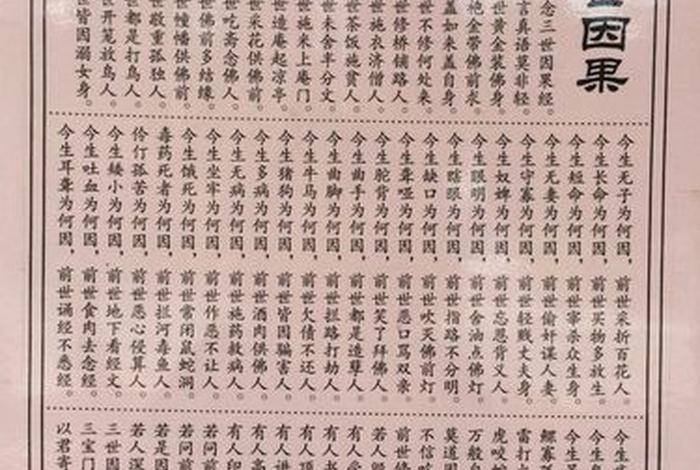 因果
念三世因果经。
言真语莫非轻。
世黄金装佛身。
袍金带佛前求。
盖如来盖自身。
世不修何处来。
世修桥铺路人。
世施衣济僧人。
世茶饭施贫人。
世未舍半分文。
世施米上庵门。
世造庵起凉亭。
世采花供佛前。
世吃斋念佛人。
世佛前多结缘。
世幢幡供佛前。
世敬重孤独人。
世都是打鸟人。
世开笼放鸟人。
世皆因溺女身。
今生无子为何因，前世采折百花人。
今生长命为何因，前世买物多放生。
今生短命为何因，前世宰杀众生身。
今生无妻为何因，前世偷奸谋人妻。
今生守寡为何因，前世轻贱丈夫身。
今生奴婢为何因，前世忘恩背义人。
今生眼明为何因，前世舍油点佛灯。
今生瞎眼为何因，前世指路不分明。
今生缺口为何因，前世吹灭佛前灯。
今生聋哑为何因，前世恶口骂双亲。
今生驼背为何因，前世笑了拜佛人。
今生曲手为何因，前世都是造孽人。
今生曲脚为何因，前世拦路打劫人。
今生牛马为何因，前世欠债不还人。
今生猪狗为何因，前世皆因骗害人。
今生多病为何因，前世酒肉供佛人。
今生无病为何因，前世施药救病人。
今生坐牢为何因，前世作恶不让人。
今生饿死为何因，前世常闭鼠蛇洞。
毒药死者为何因，前世拦河毒鱼人。
伶仃孤苦为何因，前世恶心侵算人。
今生矮小为何因，前世地下看经文。
今生吐血为何因，前世食肉去念经。
今生耳聋为何因，前世诵经不悉经。
今生
今生
今生
鳏寡
雷打
虎咬
万般
莫道因
不信吃
前世修
若人
有人
有人
有人讲
有人高
有人印
若问前
若问前
若是因
若人深
三世因
三宝门
以君寄